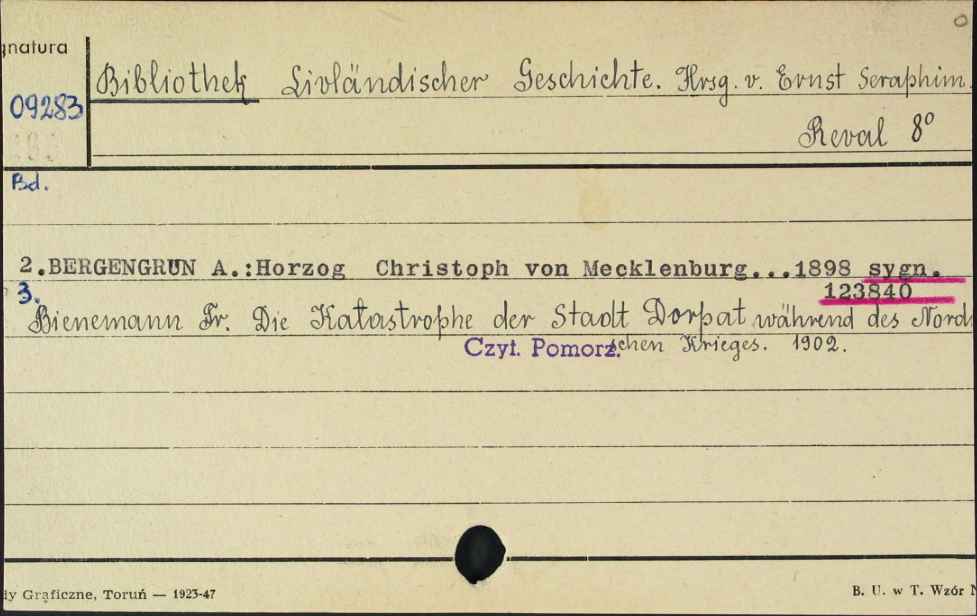 0
gnatura
Bibliothek Livländischer Geschichte. Hrsg. v. Ernst Seraphim.
09283
Reval 8°
Bd.
2.BERGENGRUN A.:Horzog Christoph von Mecklenburg...1898 sygn.
123840
3.
Bienemann Fr. Die Katastrophe der Stadt Dorpat während des Nordi
schen Krieges. 1902.
Czyt. Pomorz.
dy Graficzne, Toruń — 1923-47
B. U. w T. Wzór N